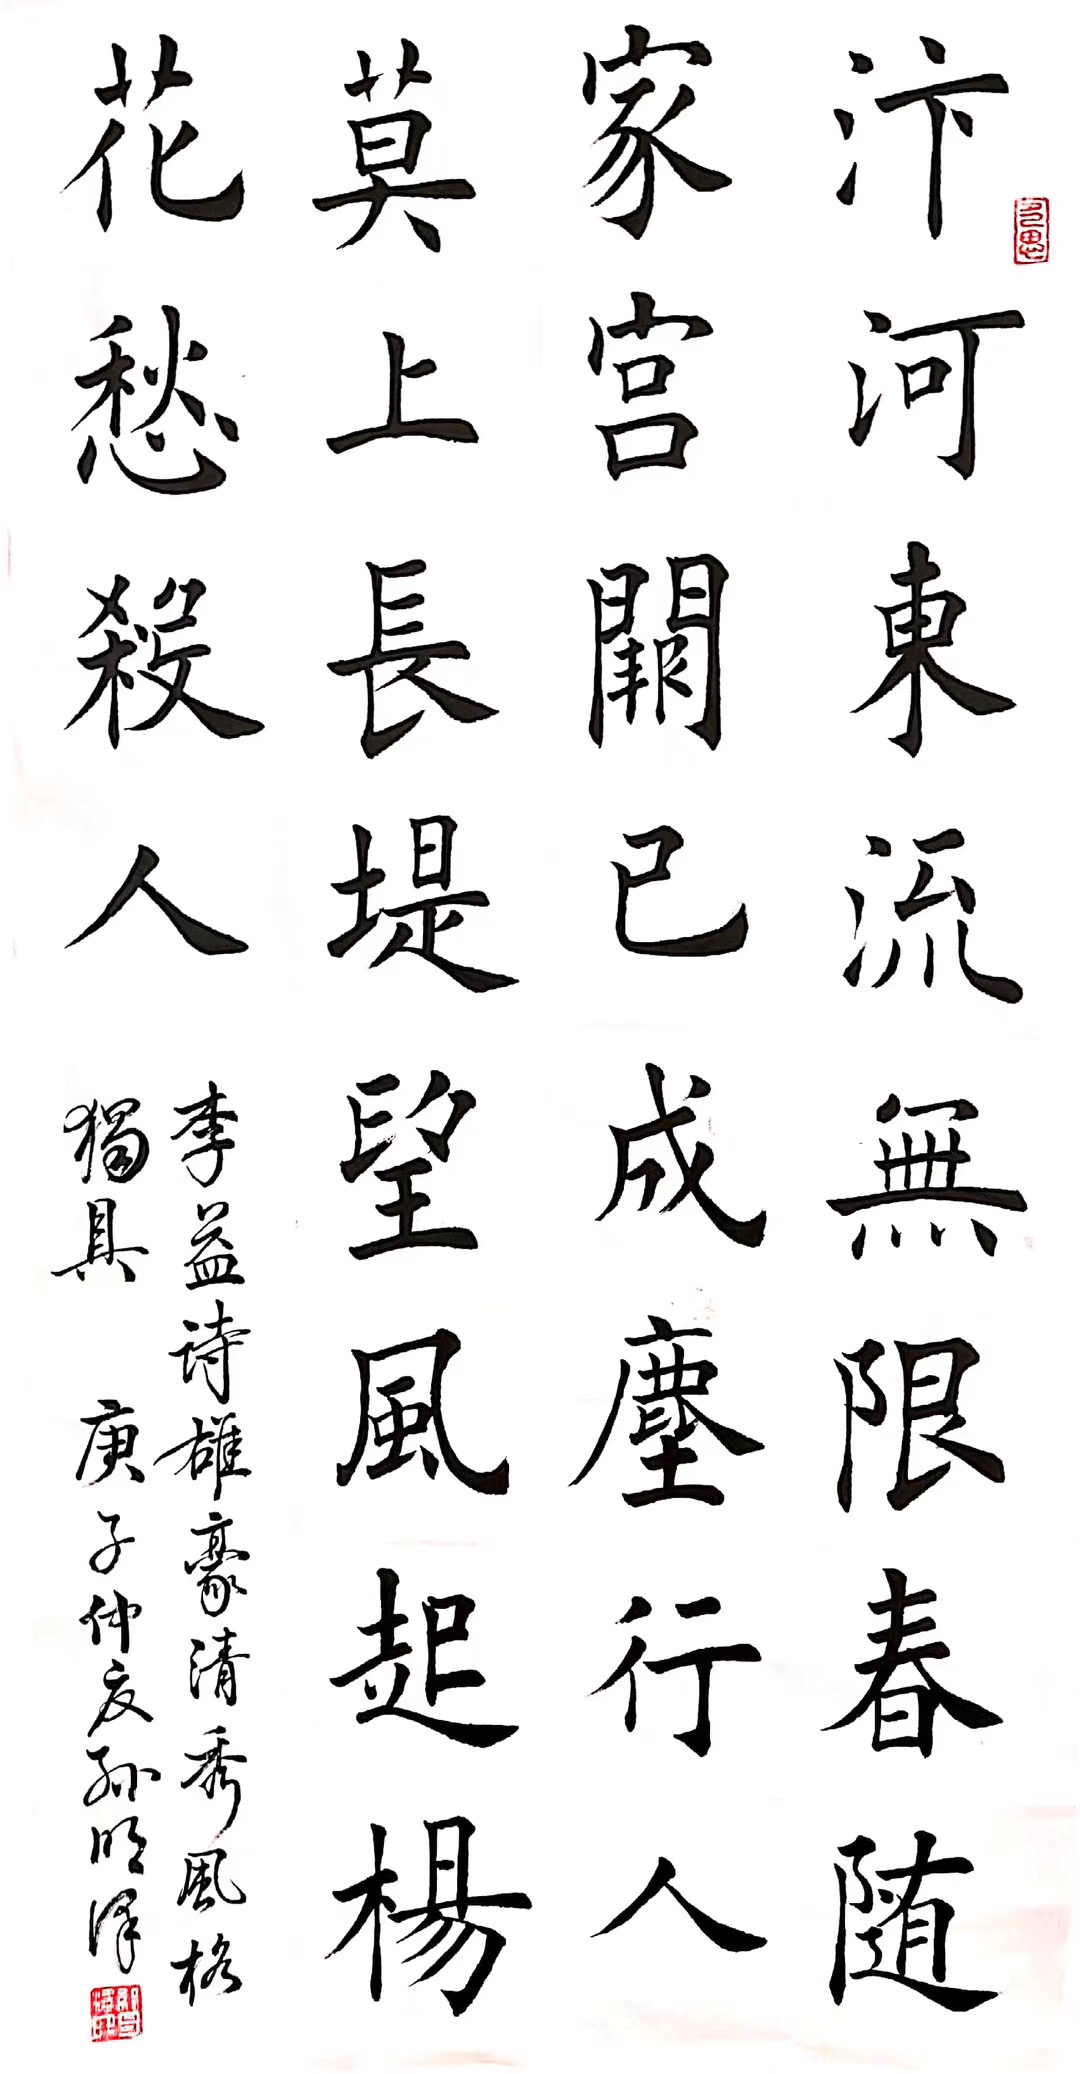 汴河東流無限春随
家宫闕已成塵行人
莫上長堤望風起楊
花愁殺人
李益诗雄豪清秀风格
獨具 庚子仲夏孙明泽